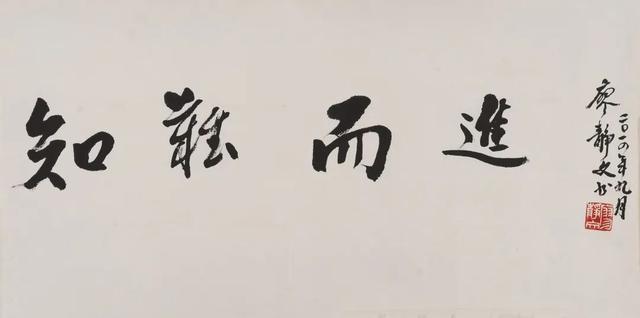 知難而進
廖静文书
二〇一〇年九月